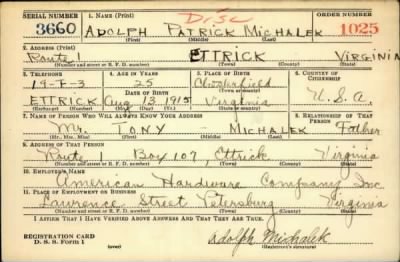 SERIAL NUMBER 1. NAME (Print) Disc ORDER NUMBER
3660 ADOLPH PATRICK MICHALEK 1025
(First) (Middle) (Last)
2. ADDRESS (Print)
Route ETTRICK VIRGINIA
(Number and street or R. F. D. number) (Town) (County) (State)
3. TELEPHONE 4. AGE IN YEARS 5. PLACE OF BIRTH 6. COUNTRY OF CITIZENSHIP
19-F-3 25 Chesterfield
DATE OF BIRTH (Town or county)
ETTRICK Aug 13 1915 Virginia U.S.A.
(Exchange) (Number) (Mo.) (Day) (Yr.) (State or country)
7. NAME OF PERSON WHO WILL ALWAYS KNOW YOUR ADDRESS 8. RELATIONSHIP OF THAT PERSON
Mr. TONY - MICHALEK Father
(Mr., Mrs., Miss) (First) (Middle) (Last)
9. ADDRESS OF THAT PERSON
Route Box 107, Ettrick Virginia
(Number and street or R. F. D. number) (Town) (County) (State)
10. EMPLOYER'S NAME
American Hardware Company Inc
11. PLACE OF EMPLOYMENT OR BUSINESS
Lawrence Street Petersburg Virginia
(Number and street or R. F. D. number) (Town) (County) (State)
I AFFIRM THAT I HAVE VERIFIED ABOVE ANSWERS AND THAT THEY ARE TRUE.
REGISTRATION CARD
D. S. S. Form 1 (over) Adolph Michalek
(Registrant's signature)